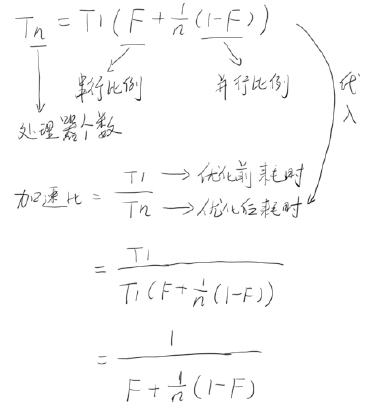 Tn = T1(F + 1/n(1-F))
串行比例 并行比例
处理器个数
代入
加速比 = T1/Tn
→优化前耗时
→优化后耗时
= T1/T1(F + 1/n(1-F))
= 1/F + 1/n(1-F)